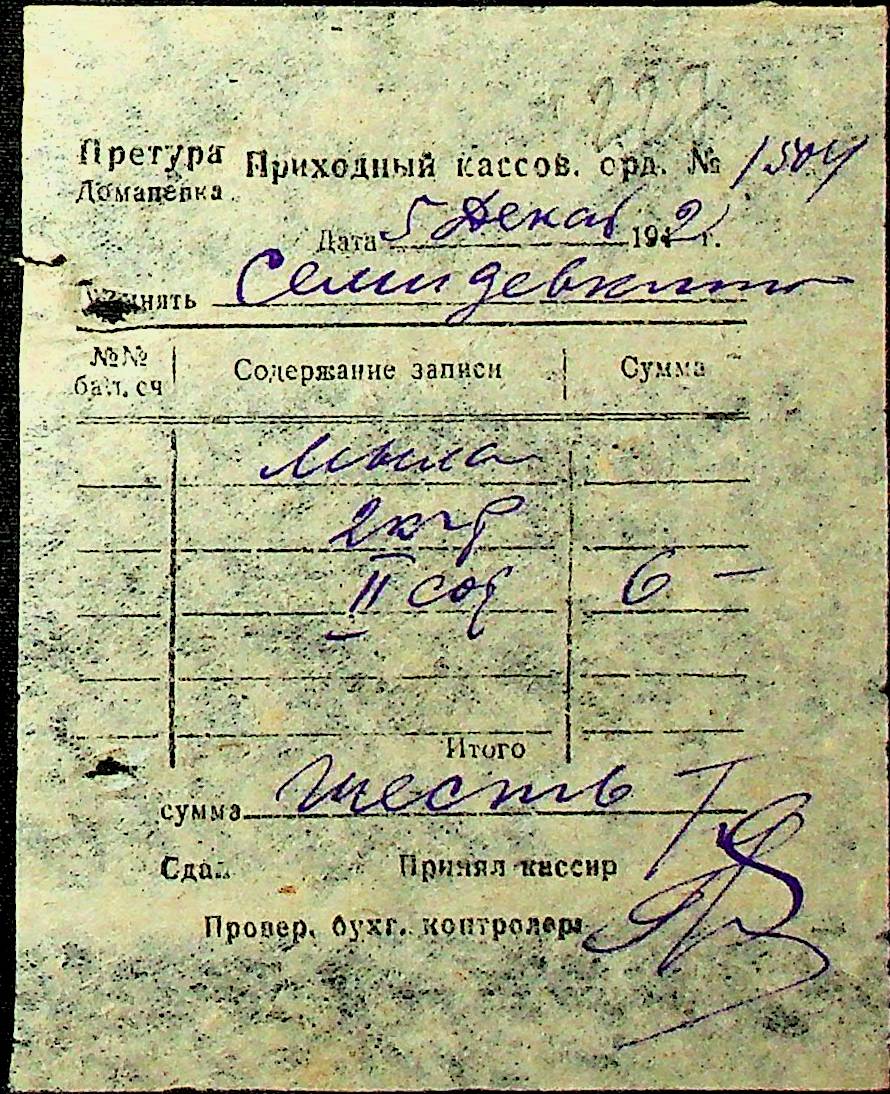 227
Претура Приходный кассов. орд. № 1504
Доманевка
Дата 5 Декаб 1942 г.
Принять
№№ бал. сч Содержание записи Сумма
мыла
2 кгр
II сор 6 —
Итого
сумма шесть
Сдал Принял кассир
Провер. бухг. контролер